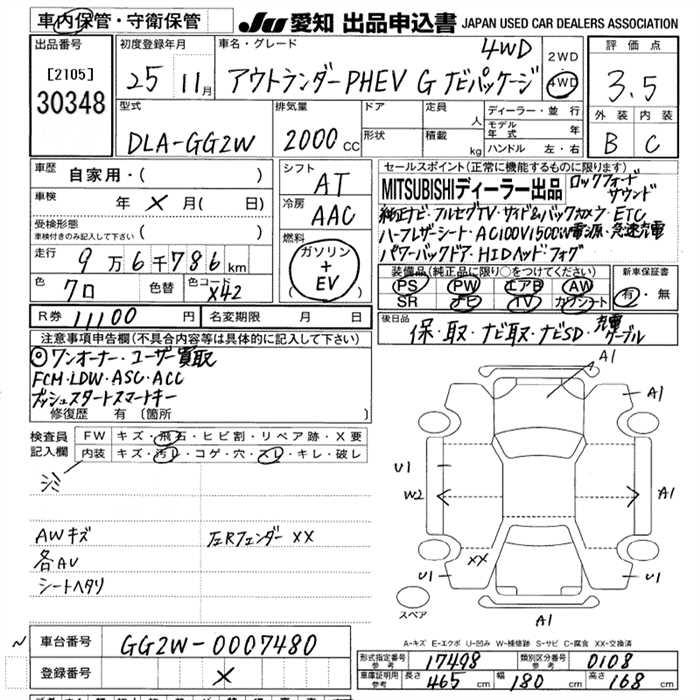 車内保管・守衛保管
JU 愛知 出品申込書 JAPAN USED CAR DEALERS ASSOCIATION
出品番号
[2105]
30348
初度登録年月
25 11月
車名・グレード
4WD
アウトランダーPHEV G ナビパッケージ
2WD
4WD
評価点
3.5
外装 内装
B C
型式
DLA-GG2W
排気量
2000 CC
ドア
形状
定員 人
積載 kg
ディーラー・並行
モデル年式 年
ハンドル 左・右
車歴 自家用・( )
車検 年 × 月( 日)
受検形態
車検付きのみ記入して下さい ( )
走行 9万6千786km
色 クロ 色替 色コード X42
シフト
AT
冷房
AAC
燃料
ガソリン
+
EV
R券 11100 円 名変期限 月 日
セールスポイント(正常に機能するものに限ります)
MITSUBISHIディーラー出品 ロックフォードサウンド
純正ナビ・フルセグTV・サイド&バックカメラ・ETC
ハーフレザーシート・AC100V1500W電源・急速充電
パワーバックドア・HIDヘッド・フォグ
装備品(純正品に限り○をつけてください)
PS PW エアB AW
SR ナビ TV カワシート
新車保証書
有・無
後日品
保・取・ナビ取・ナビSD・充電ケーブル
注意事項申告欄(不具合内容等は具体的に記入して下さい)
◎ワンオーナー・ユーザー買取
FCM・LDW・ASC・ACC
プッシュスタートスマートキー
修復歴 有( 箇所 )
検査員記入欄
FW キズ・飛石・ヒビ割・リペア跡・X要
内装 キズ・汚レ・コゲ・穴・スレ・キレ・破レ
シミ
AWキズ
左Rフェンダー XX
各AU
シートヘタリ
A1
A1
U1
W2
A1
XX
U1
U1
A1
スペア
A-キズ E-エクボ U-凹み W-補修跡 S-サビ C-腐食 XX-交換済
車台番号 GG2W-0007480
登録番号 ×
形式指定番号 参考 17498 類別区分番号 参考 0108
車庫証明用 参考 長さ 465cm 幅 180cm 高さ 168cm